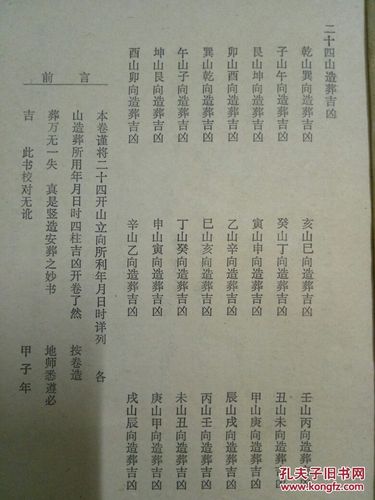 二十四山造葬吉凶
乾山巽向造葬吉凶 亥山巳向造葬吉凶 壬山丙向造葬吉凶
子山午向造葬吉凶 癸山丁向造葬吉凶 丑山未向造葬吉凶
艮山坤向造葬吉凶 寅山申向造葬吉凶 甲山庚向造葬吉凶
卯山酉向造葬吉凶 乙山辛向造葬吉凶 辰山戌向造葬吉凶
巽山乾向造葬吉凶 巳山亥向造葬吉凶 丙山壬向造葬吉凶
午山子向造葬吉凶 丁山癸向造葬吉凶 未山丑向造葬吉凶
坤山艮向造葬吉凶 申山寅向造葬吉凶 庚山甲向造葬吉凶
酉山卯向造葬吉凶 辛山乙向造葬吉凶 戌山辰向造葬吉凶
前 言
本卷谨将二十四开山立向所利年月日时详列 各
山造葬所用年月日时四柱吉凶开卷了然 按卷造
葬万无一失 真是竖造安葬之妙书 地师悉遵必
吉 此书校对无讹 甲子年
孔夫子旧书网
www.kongfz.com